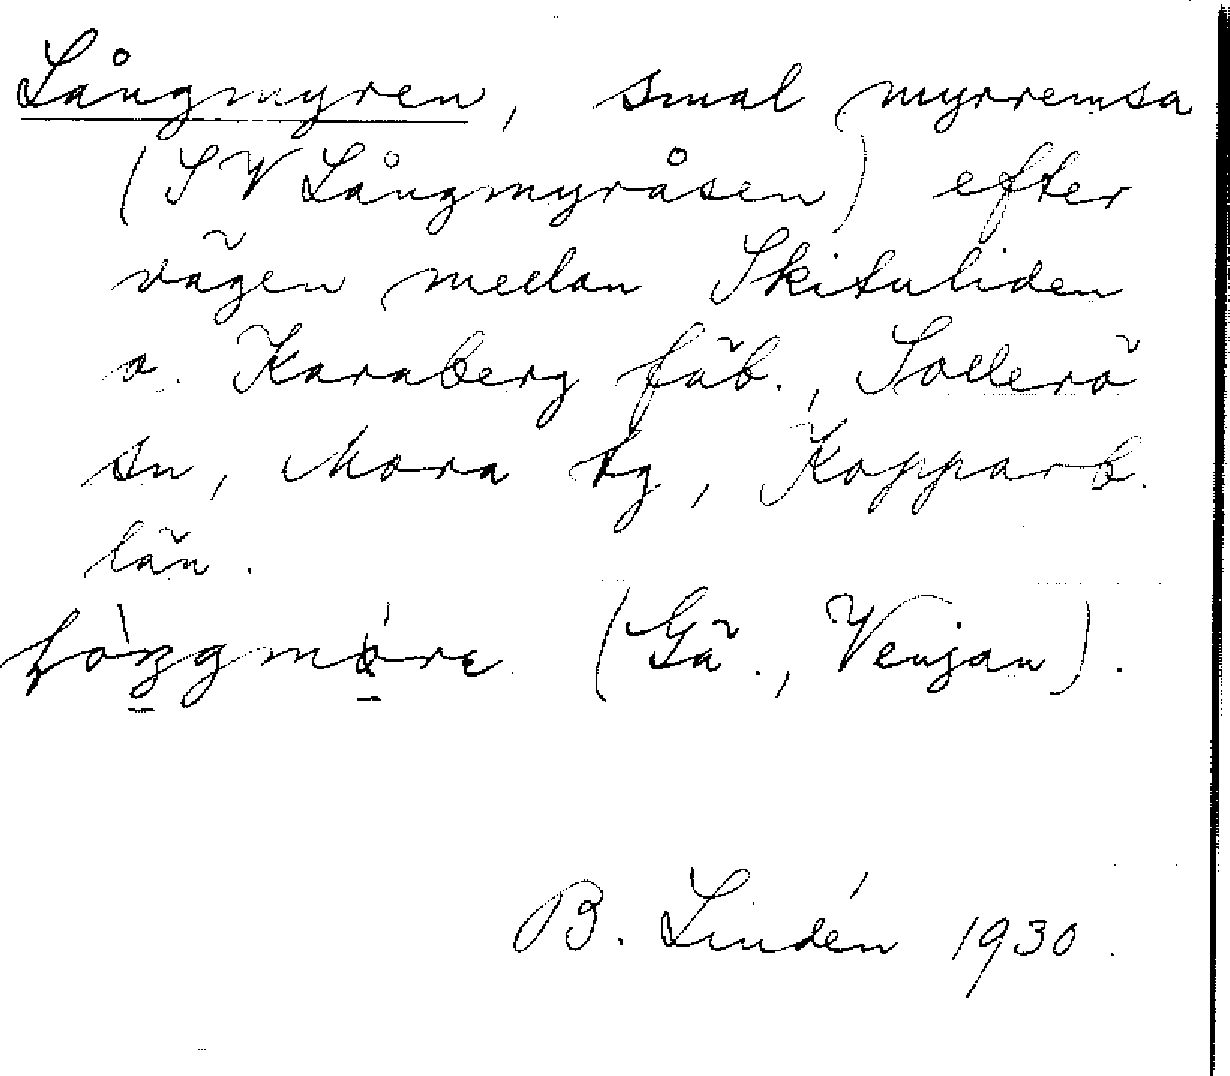 Långmyren, smal myrremsa
(SV Långmyråsen) efter
vägen mellan Skituliden
o. Karaberg fäb., Sollerö
sn, Mora tg, Kopparb.
län.
(Gä., Venjan).
B. Lindén 1930.